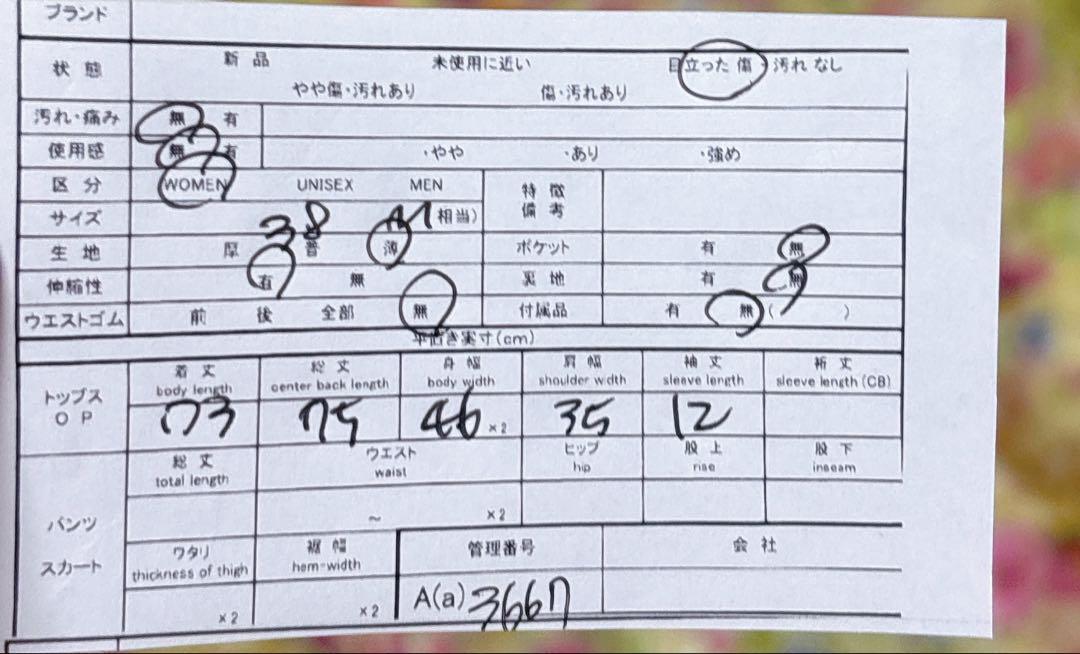 ブランド
状態 新品 未使用に近い 目立った傷 汚れなし
やや傷・汚れあり 傷・汚れあり
汚れ・痛み 無 有
使用感 無 有 ・やや ・あり ・強め
区分 WOMEN UNISEX MEN 特徴備考
サイズ 38 M相当)
生地 厚 普 薄 ポケット 有 無
伸縮性 有 無 裏地 有 無
ウエストゴム 前 後 全部 無 付属品 有 無( )
平置き実寸(cm)
トップス OP 着丈 総丈 身幅 肩幅 袖丈 裄丈
body length center back length body width shoulder width sleeve length sleeve length (CB)
73 75 46 ×2 35 12
総丈 ウエスト ヒップ 股上 股下
total length waist hip rise inseam
パンツ ～ ×2
スカート ワタリ 裾幅 管理番号 会社
thickness of thigh hem-width
×2 ×2 A(a) 3667